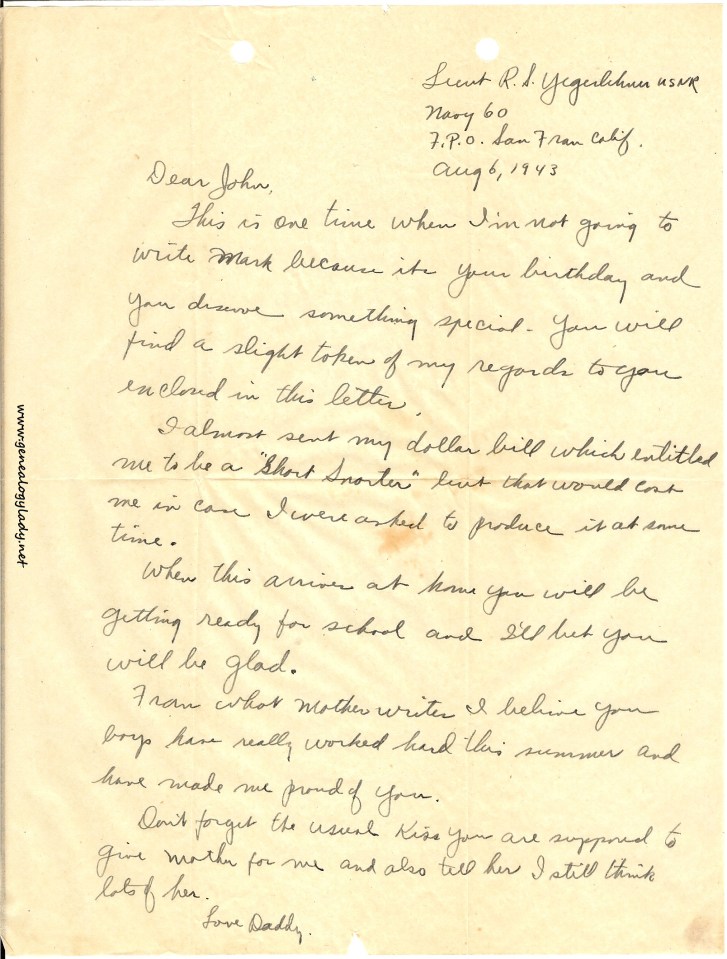 Lieut R. S. Yegerlehner USNR
Navy 60
F.P.O. San Fran Calif.
Aug 6, 1943
Dear John,
This is one time when I'm not going to
write Mark because its your birthday and
you diserve something special - You will
find a slight token of my regards to you
enclosed in this letter.
I almost sent my dollar bill which entitled
me to be a "Short Snorter" but that would cost
me in case I were asked to produce it at some
time.
When this arrives at home you will be
getting ready for school and I'll bet you
will be glad.
From what Mother writes I believe you
boys have really worked hard this summer and
have made me proud of you.
Don't forget the usual Kiss you are supposed to
give Mother for me and also tell her I still think
lots of her.
Love Daddy.
www.genealogylady.net